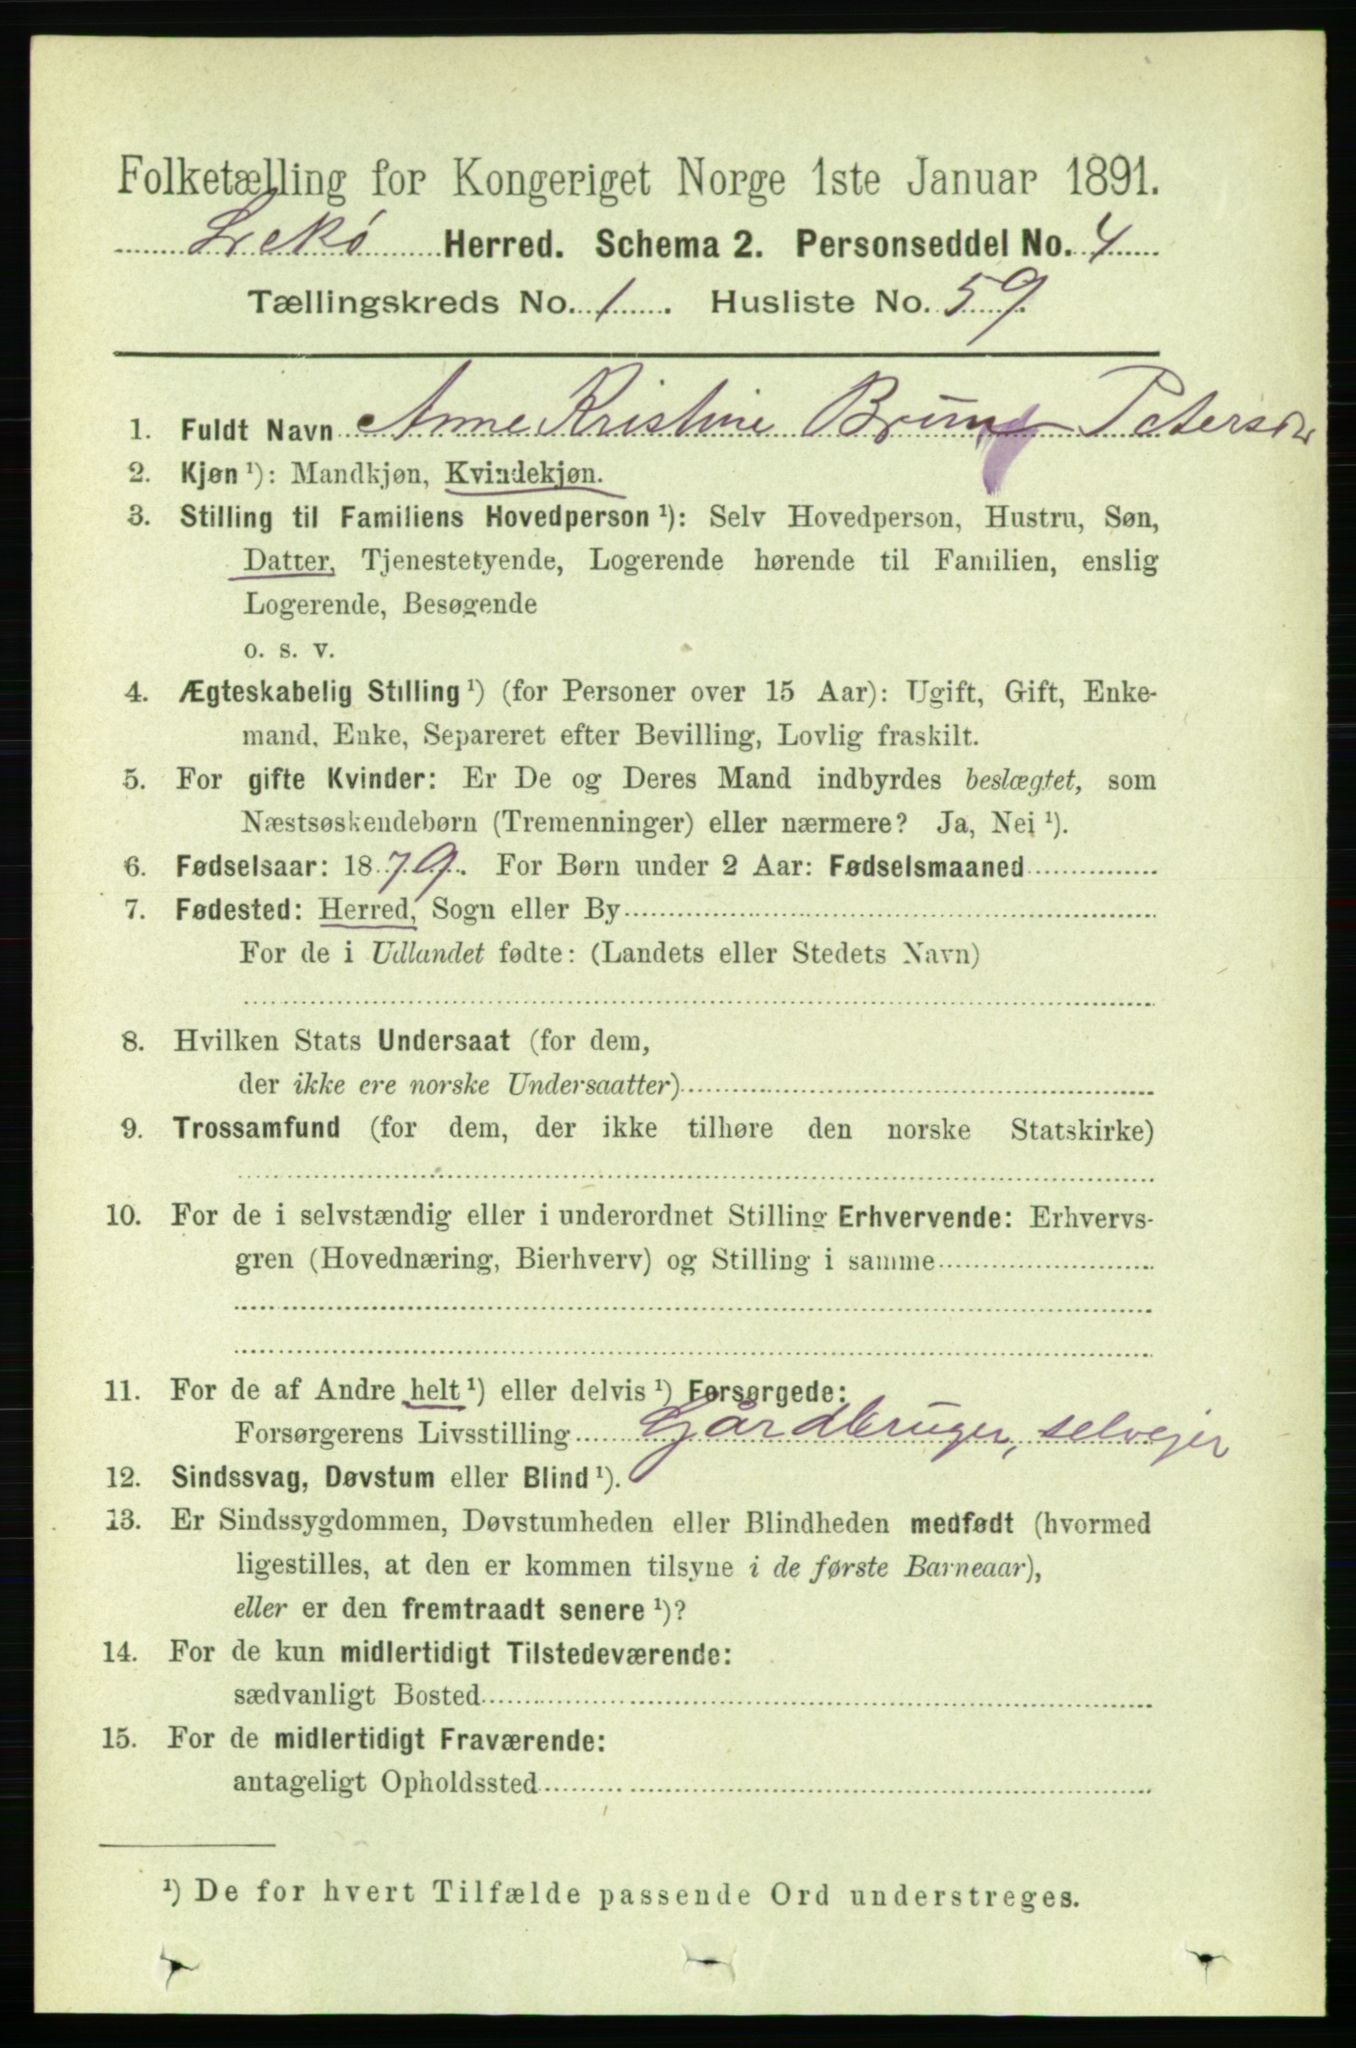 Folketælling for Kongeriget Norge 1ste Januar 1891.
Lekø Herred. Schema 2. Personseddel No. 4
Tællingskreds No. 1. Husliste No. 59.
1. Fuldt Navn Anne Kristine Petersdr
2. Kjøn ¹): Mandkjøn, Kvindekjøn.
3. Stilling til Familiens Hovedperson ¹): Selv Hovedperson, Hustru, Søn,
Datter, Tjenestetyende, Logerende hørende til Familien, enslig
Logerende, Besøgende
o. s. v.
4. Ægteskabelig Stilling ¹) (for Personer over 15 Aar): Ugift, Gift, Enke-
mand, Enke, Separeret efter Bevilling, Lovlig fraskilt.
5. For gifte Kvinder: Er De og Deres Mand indbyrdes beslægtet, som
Næstsøskendebørn (Tremenninger) eller nærmere? Ja, Nei ¹).
6. Fødselsaar: 1879. For Børn under 2 Aar: Fødselsmaaned
7. Fødested: Herred, Sogn eller By
For de i Udlandet fødte: (Landets eller Stedets Navn)
8. Hvilken Stats Undersaat (for dem,
der ikke ere norske Undersaatter)
9. Trossamfund (for dem, der ikke tilhøre den norske Statskirke)
10. For de i selvstændig eller i underordnet Stilling Erhvervende: Erhvervs-
gren (Hovednæring, Bierhverv) og Stilling i samme
11. For de af Andre helt ¹) eller delvis ¹) Forsørgede:
Forsørgerens Livsstilling Gårdbruger, selvejer
12. Sindssvag, Døvstum eller Blind ¹).
13. Er Sindssygdommen, Døvstumheden eller Blindheden medfødt (hvormed
ligestilles, at den er kommen tilsyne i de første Barneaar),
eller er den fremtraadt senere ¹)?
14. For de kun midlertidigt Tilstedeværende:
sædvanligt Bosted
15. For de midlertidigt Fraværende:
antageligt Opholdssted
¹) De for hvert Tilfælde passende Ord understreges.